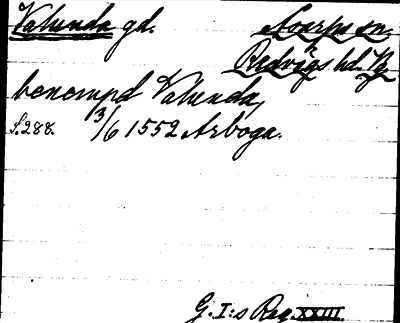 Valunda gd. Noarps sn,
Redvägs hd. Vg
benempd Valunda,
s. 288. 3/6 1552 Arboga.
G. I:s Reg. XXIII.